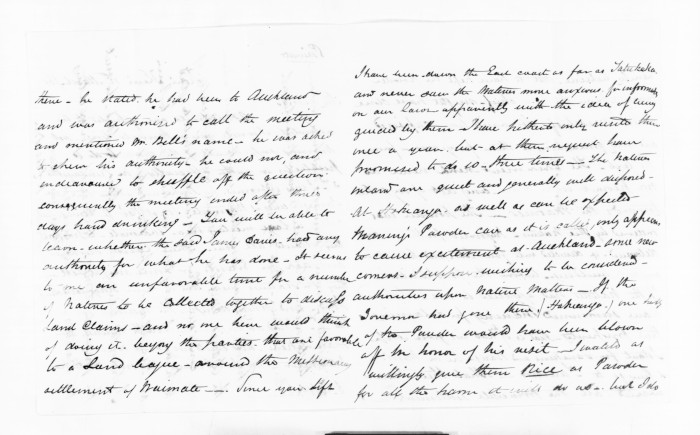 there - he stated he had been to Auckland
and was authorised to call the meeting
and mentioned Mr. Bell's name - he was asked
to shew his authority - he could not, and
endeavoured to shuffle off the question
consequently the meeting ended after three
days hard drinking - You will be able to
learn - whether the said James Davis had any
authority for what he has done - It seems
to me an unfavorable time for a number
of Natives to be collected together to discuss
land Claims - and no one here would think
of doing it. beyong the parties. that are favorable
to a Land league - around the Missionary
settlement of Waimate -. Since you left
I have been down the East coast as far as
and never saw the Natives more anxious for information
on our laws apparently with the idea of being
guided by them I have hitherto only visited them
once a year. but at their request have
promised to do so three times - The natives
inland are quiet and generally well disposed -
At Hokianga as well as can be expected
Maning's Powder case as it is called, only appears
to cause excitement at Auckland - some new
comers - I suppose wishing to be considered -
authorities upon Native Matters - If the
Governor had gone there (Hokianga) one
of the Powder would have been blown
off in honor of his visit - I would as
willingly give them Rice as Powder
for all the harm it will do us - but I do